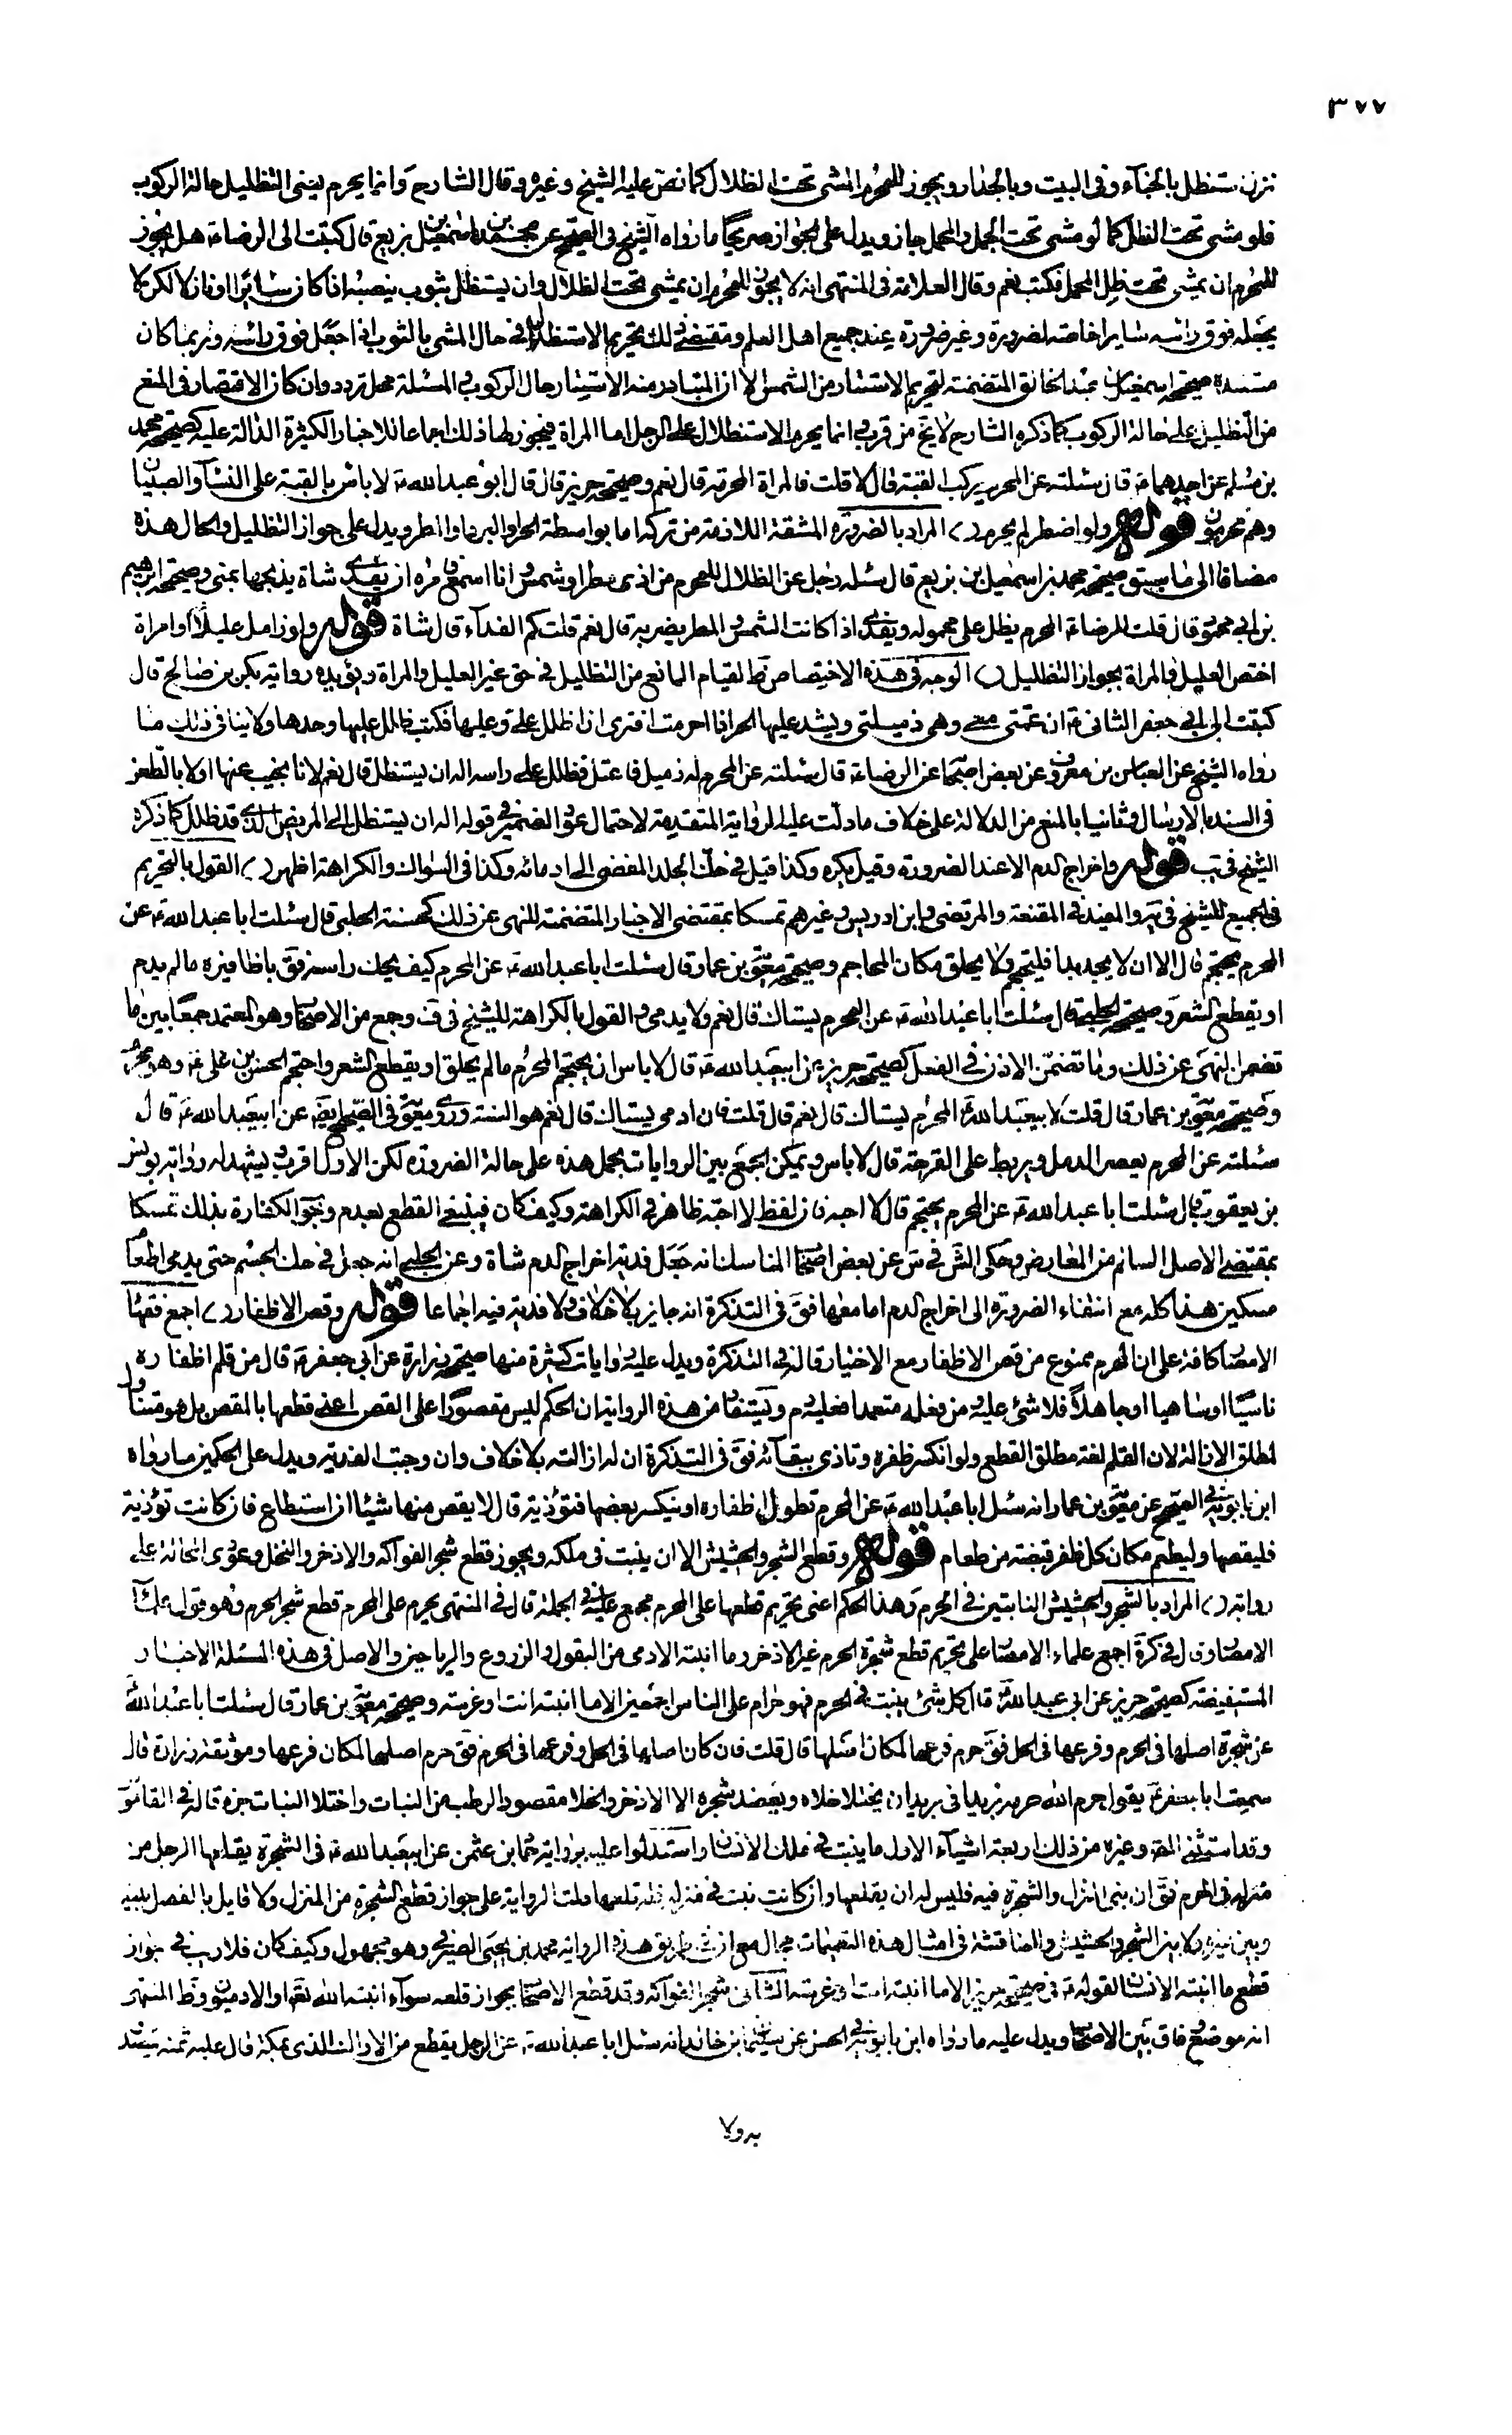 ٣٧٧
نزل استظل بالخباء وفى البيت وبالجدار ويجوز للمحرم المشى تحت الظلال كما نص عليه الشيخ وغيره وقال الشارح وانما يحرم يعنى التظليل حالة الركوب
فلو مشى تحت الظل كما لو مشى تحت الجمل والمحمل جاز ويدل على الجواز صريحا ما رواه الشيخ فى الصحيح عن محمد بن اسمعيل بن بزيع قال كتبت الى الرضا ع هل يجوز
للمحرم ان يمشى تحت ظل المحمل فكتب نعم وقال العلامة فى المنتهى انه لا يجوز للمحرم ان يمشى تحت الظلال وان يستظل بثوب ينصبه اذا كان سائرا او نازلا لكن لا
يجعله فوق راسه سايرا خاصة لضرورة وغير ضرورة عند جميع اهل العلم ومقتضى ذلك تحريم الاستظلال فى حال المشى بالثوب اذا جعل فوق راسه وربما كان
مستنده صحيحة اسمعيل بن عبد الخالق المتضمنة لتحريم الاستتار من الشمس الا ان المتبادر منه الاستتار حال الركوب و المسئلة محل تردد وان كان الاقتصار فى المنع
من التظليل على حالة الركوب كما ذكره الشارح لا يخ من قرب و انما يحرم الاستظلال على الرجل اما المراة فيجوز لها ذلك اجماعا للاخبار الكثيرة الدالة عليه كصحيحة محمد
بن مسلم عن احدهما ع قال سئلته عن المحرم يركب القبة قال لا قلت فالمراة المحرمة قال نعم وصحيحة حريز قال قال ابو عبد الله ع لا باس بالقبة على النساء والصبيان
وهم محرمون قوله ولو اضطر لم يحرم المراد بالضرورة المشقة اللازمة من تركه اما بواسطة الحر او البرد او المطر ويدل على جواز التظليل والحال هذه
مضافا الى ما سبق صحيحة محمد بن اسمعيل بن بزيع قال سئله رجل عن الظلال للمحرم من اذى مطر او شمس وانا اسمع فامره ان يفدى شاة يذبحها بمنى وصحيحة ابرهيم
بن ابى محمود قال قلت للرضا ع المحرم يظل على محمله ويفدى اذا كانت الشمس والمطر يضر به قال نعم قلت كم الفداء قال شاة قوله ولو زامل عليلا او امراة
اختص العليل والمراة بجواز التظليل الوجه فى هذه الاختصاص ظ لقيام المانع من التظليل فى حق غير العليل والمراة ويؤيده رواية بكر بن صالح قال
كتبت الى ابى جعفر الثانى ع ان عمتى معى وهى زميلتى ويشتد عليها الحر اذا احرمت افترى ان اظلل على وعليها فكتب ظلل عليها وحدها ولا ينافى ذلك ما
رواه الشيخ عن العباس بن معروف عن بعض اصحابنا عن الرضا ع قال سئلته عن المحرم له زميل فاعتل فظلل على راسه اله ان يستظل قال نعم لانا نجيب عنها اولا بالطعن
فى السند بالارسال وثانيا بالمنع من الدلالة على خلاف ما دلت عليه الرواية المتقدمة لاحتمال عود الضمير فى قوله اله ان يستظل الى المريض الذى قد ظلل كما ذكره
الشيخ فى يب قوله واخراج الدم الا عند الضرورة وقيل يكره وكذا قيل فى حك الجلد المفضى الى ادمائه وكذا فى السواك والكراهة اظهر القول بالتحريم
فى الجميع للشيخ فى يه والمفيد فى المقنعة والمرتضى وابن ادريس وغيرهم تمسكا بمقتضى الاخبار المتضمنة للنهى عن ذلك كحسنة الحلبى قال سئلت ابا عبد الله ع عن
المحرم يحتجم قال لا الا ان لا يجد بدا فليحتجم ولا يحلق مكان المحاجم وصحيحة معوية بن عمار قال سئلت ابا عبد الله ع عن المحرم كيف يحك راسه فق باظافيره ما لم يدم
او يقطع الشعر وصحيحة الحلبى قال سئلت ابا عبد الله ع عن المحرم يستاك قال نعم ولا يدمى و القول بالكراهة للشيخ فى ف وجمع من الاصحاب وهو المعتمد جمعا بين ما
تضمن النهى عن ذلك وما تضمن الاذن فى الفعل كصحيحة حريز عن ابيعبد الله ع قال لا باس ان يحتجم المحرم ما لم يحلق او يقطع الشعر واحتجم الحسن بن على ع وهو محرم
وصحيحة معوية بن عمار قال قلت لابيعبد الله ع المحرم يستاك قال نعم قال قلت فان ادمى يستاك قال نعم هو السنة وروى معوية فى الصحيح ايضا عن ابيعبد الله ع قال
سئلته عن المحرم يعصر الدمل ويربط على القرحة قال لا باس و يمكن الجمع بين الروايات بحمل هذه على حالة الضرورة لكن الاول اقرب و يشهد له رواية يونس
بن يعقوب قال سئلت ابا عبد الله ع عن المحرم يحتجم قال لا احبه فان لفظ لا احبه ظاهر فى الكراهة وكيف كان فينبغى القطع بعدم وجوب الكفارة بذلك تمسكا
بمقتضى الاصل السالم من المعارض وحكى الش فى س عن بعض اصحاب المناسك انه جعل فدية اخراج الدم شاة وعن الحلبى انه جعل فى حك الجسم حتى يدمى اطعام
مسكين هذا كله مع انتفاء الضرورة الى اخراج الدم اما معها فق فى التذكرة انه جايز بلا خلاف ولا فدية فيه اجماعا قوله وقص الاظفار اجمع فقهاء
الامصار كافة على ان المحرم ممنوع من قص الاظفار مع الاختيار قاله فى التذكرة ويدل عليه روايات كثيرة منها صحيحة زرارة عن ابى جعفر ع قال من قلم اظفاره
ناسيا او ساهيا او جاهلا فلا شئ عليه ومن فعله متعمدا فعليه دم ويستفاد من هذه الرواية ان الحكم ليس مقصورا على القص اعنى قطعها بالمقص بل هو متناول
لمطلق الازالة لان القلم لغة مطلق القطع ولو انكسر ظفره وتاذى ببقائه فق فى التذكرة ان له ازالته بلا خلاف وان وجبت الفدية ويدل على الحكمين ما رواه
ابن بابويه فى الصحيح عن معوية بن عمار انه سئل ابا عبد الله ع عن المحرم تطول اظفاره او ينكسر بعضها فتؤذيه قال لا يقص منها شيئا ان استطاع فان كانت تؤذيه
فليقصها وليطعم مكان كل ظفر قبضة من طعام قوله وقطع الشجر والحشيش الا ان ينبت فى ملكه ويجوز قطع شجر الفواكه والاذخر والنخل وعودى المحالة على
رواية المراد بالشجر والحشيش النابتين فى الحرم وهذا الحكم اعنى تحريم قطعها على المحرم مجمع عليه فى الجملة قال فى المنتهى يحرم على المحرم قطع شجر الحرم وهو قول علماء
الامصار وقال فى كرة اجمع علماء الامصار على تحريم قطع شجرة الحرم غير الاذخر وما انبته الادمى من البقول و الزروع والرياحين والاصل فى هذه المسئلة الاخبار
المستفيضة كصحيحة حريز عن ابى عبد الله ع قال كل شئ ينبت فى الحرم فهو حرام على الناس اجمعين الا ما انبته انت او غرسته وصحيحة معوية بن عمار قال سئلت ابا عبد الله ع
عن شجرة اصلها فى الحرم وفرعها فى الحل فق حرم فرعها لمكان اصلها قال قلت فان كان اصلها فى الحل وفرعها فى الحرم فق حرم اصلها لمكان فرعها وموثقة زرارة قال
سمعت ابا جعفر ع يقول حرم الله حرمه بريدا فى بريد ان يختلا خلاه ويعضد شجره الا الاذخر والخلا مقصور الرطب من النبات واختلا النبات جزه قاله فى القاموس
وقد استثنى المص وغيره من ذلك اربعة اشياء الاول ما ينبت فى ملك الانسان واستدلوا عليه برواية حماد بن عثمن عن ابيعبد الله ع فى الشجرة يقلعها الرجل من
منزله فى الحرم فق ان بنى المنزل والشجرة فيه فليس له ان يقلعها وان كانت نبت فى منزله فله قلعها دلت الرواية على جواز قطع الشجرة من المنزل ولا قايل بالفصل بينه
وبين غيره ولا بين الشجر والحشيش وللمناقشة فى امثال هذه التعميمات مجال مع ان فى طريق هذه الرواية محمد بن يحيى الصيرفى وهو مجهول وكيف كان فلا ريب فى جواز
قطع ما انبته الانسان لقوله ع فى صحيحة حريز الا ما انبته انت او غرسته الثانى شجر الفواكه وقد قطع الاصحاب بجواز قلعه سواء انبته الله تعالى او الادميون وظ المنتهى
انه موضع وفاق بين الاصحاب ويدل عليه ما رواه ابن بابويه فى الحسن عن سليمان بن خالد انه سئل ابا عبد الله ع عن الرجل يقطع من الاراك الذى بمكة قال عليه ثمنه يتصدق
به ولا